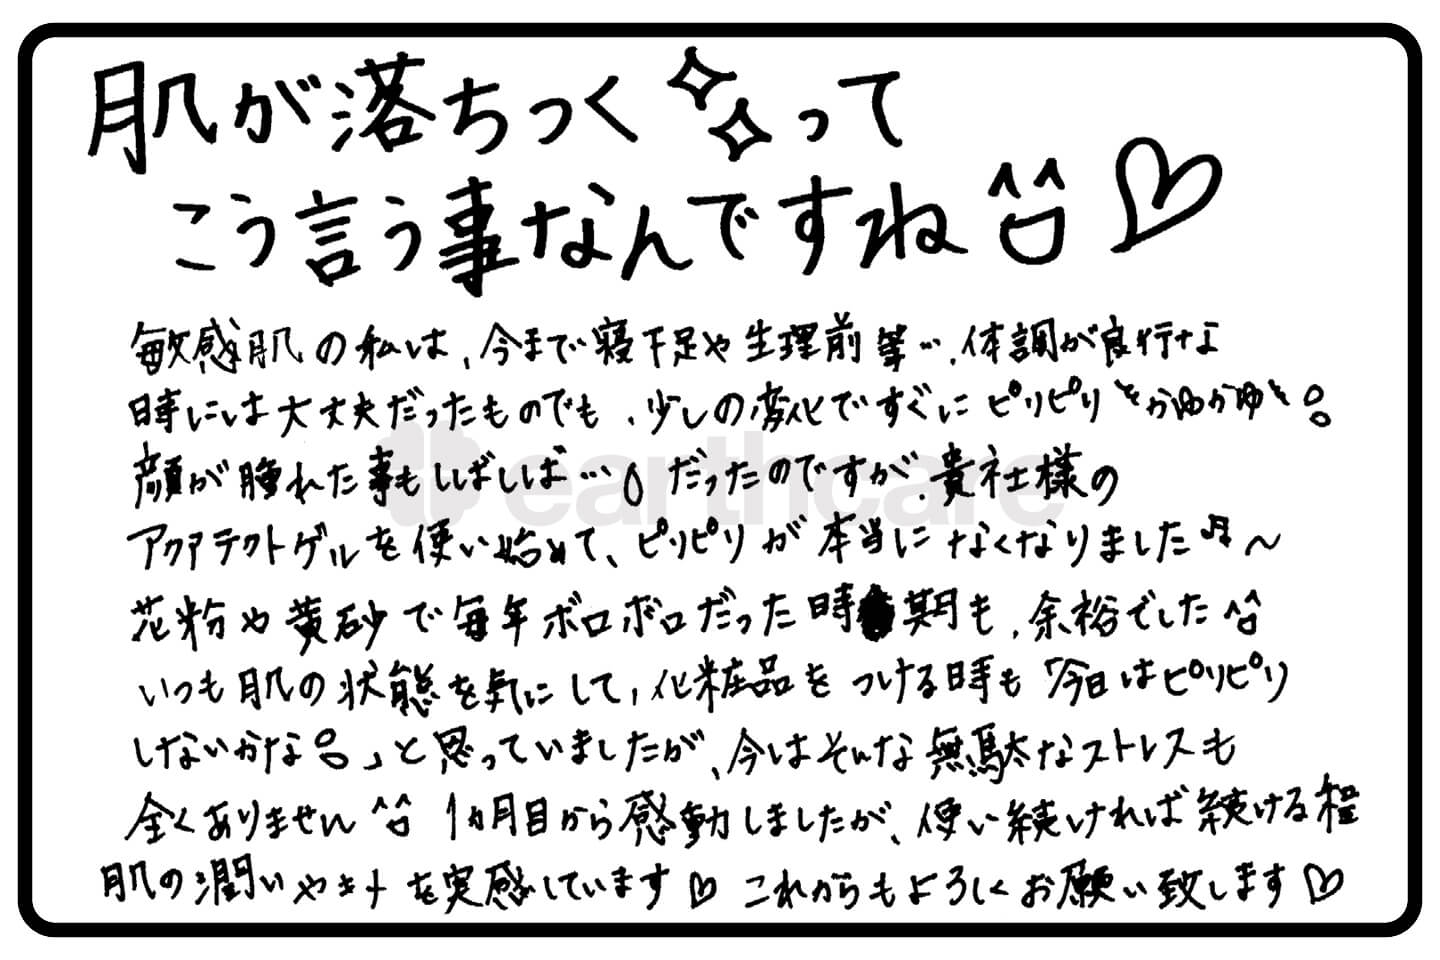 肌が落ちつく✨って
こう言う事なんですね^^♡
敏感肌の私は、今まで寝不足や生理前等…、体調が良行な
時には大丈夫だったものでも、少しの変化ですぐにピリピリ〝かゆかゆ〟。
顔が腫れた事もしばしば…だったのですが、貴社様の
アクアテクトゲルを使い始めて、ピリピリが本当になくなりました♬〜
花粉や黄砂で毎年ボロボロだった時期も、余裕でした^^
いつも肌の状態を気にして、化粧品をつける時も「今日はピリピリ
しないかな。」と思っていましたが、今はそんな無駄なストレスも
全くありません^^ 1ヵ月目から感動しましたが、使い続ければ続ける程
肌の潤いやキメを実感しています♡ これからもよろしくお願い致します♡
earthcare